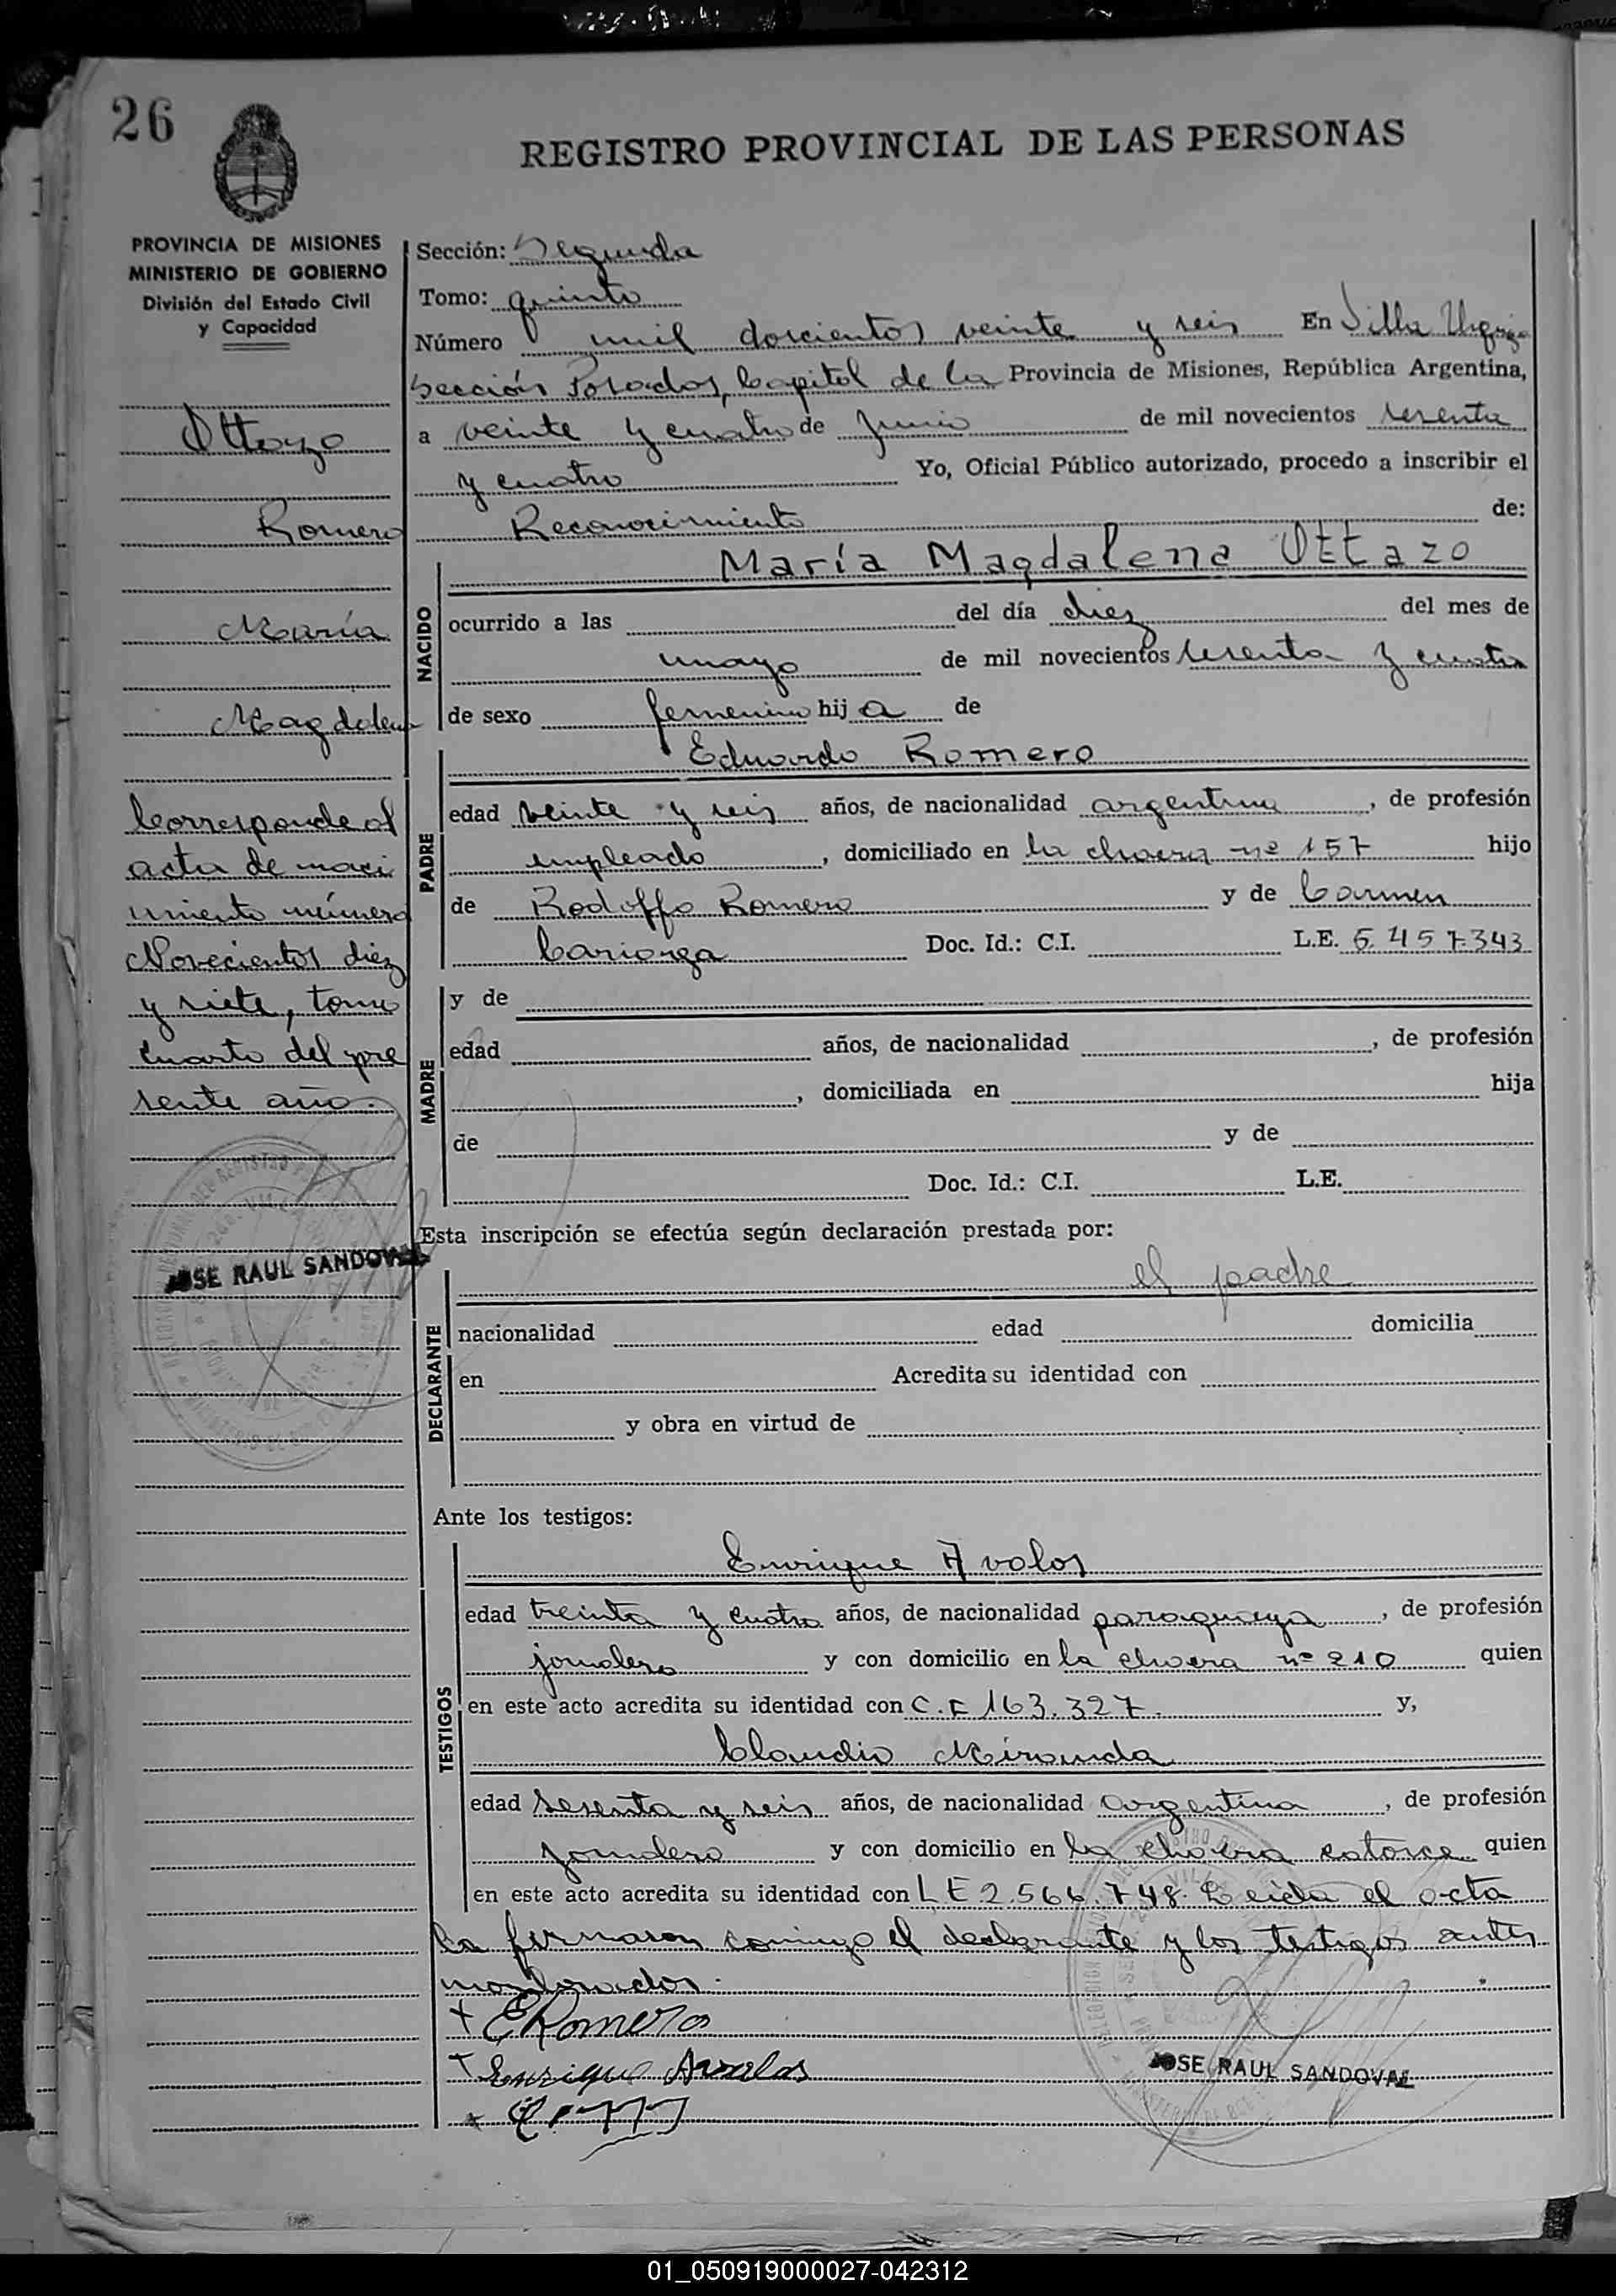 26
REGISTRO PROVINCIAL DE LAS PERSONAS
PROVINCIA DE MISIONES
MINISTERIO DE GOBIERNO
División del Estado Civil
y Capacidad
Ottazo
Romero
María
Magdalena
Corresponde al
acta de naci
miento número
Novecientos diez
y siete, tomo
cuarto del pre
sente año.
JOSE RAUL SANDOVAL
Sección: Segunda
Tomo: quinto
Número mil doscientos veinte y seis En Villa Urquiza
Sección Posadas, Capital de la Provincia de Misiones, República Argentina,
a veinte y cuatro de Junio de mil novecientos sesenta
y cuatro Yo, Oficial Público autorizado, procedo a inscribir el
Reconocimiento de:
María Magdalena Ottazo
NACIDO
ocurrido a las del día diez del mes de
mayo de mil novecientos sesenta y cuatro
de sexo femenino hij a de
Eduardo Romero
PADRE
edad veinte y seis años, de nacionalidad argentina, de profesión
empleado, domiciliado en la chacra nº 157 hijo
de Rodolfo Romero y de Carmen
Doc. Id.: C.I. L.E. 5.457.343
MADRE
y de
edad años, de nacionalidad , de profesión
, domiciliada en hija
de y de
Doc. Id.: C.I. L.E.
Esta inscripción se efectúa según declaración prestada por:
el padre
DECLARANTE
nacionalidad edad domicilia
en Acredita su identidad con
y obra en virtud de
Ante los testigos:
Enrique Avalos
TESTIGOS
edad treinta y cuatro años, de nacionalidad paraguaya, de profesión
jornalero y con domicilio en la chacra nº 210 quien
en este acto acredita su identidad con C.I 163.327. y,
Claudio Miranda
edad sesenta y seis años, de nacionalidad argentina, de profesión
jornalero y con domicilio en la chacra catorce quien
en este acto acredita su identidad con LE 2.566.748. Leida el acta
la firmaron conmigo el declarante y los testigos antes
nombrados.
+ E Romero
+ Enrique Avalos
JOSE RAUL SANDOVAL
01_050919000027-042312